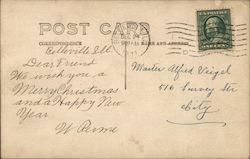 POST CARD
CORRESPONDENCE
NAME AND ADDRESS
Belleville Ill
Dear Friend
We wish you, a
Merry Christmas
and a Happy New
Year.
Master Alfred Veigel
516 Survey Str
City